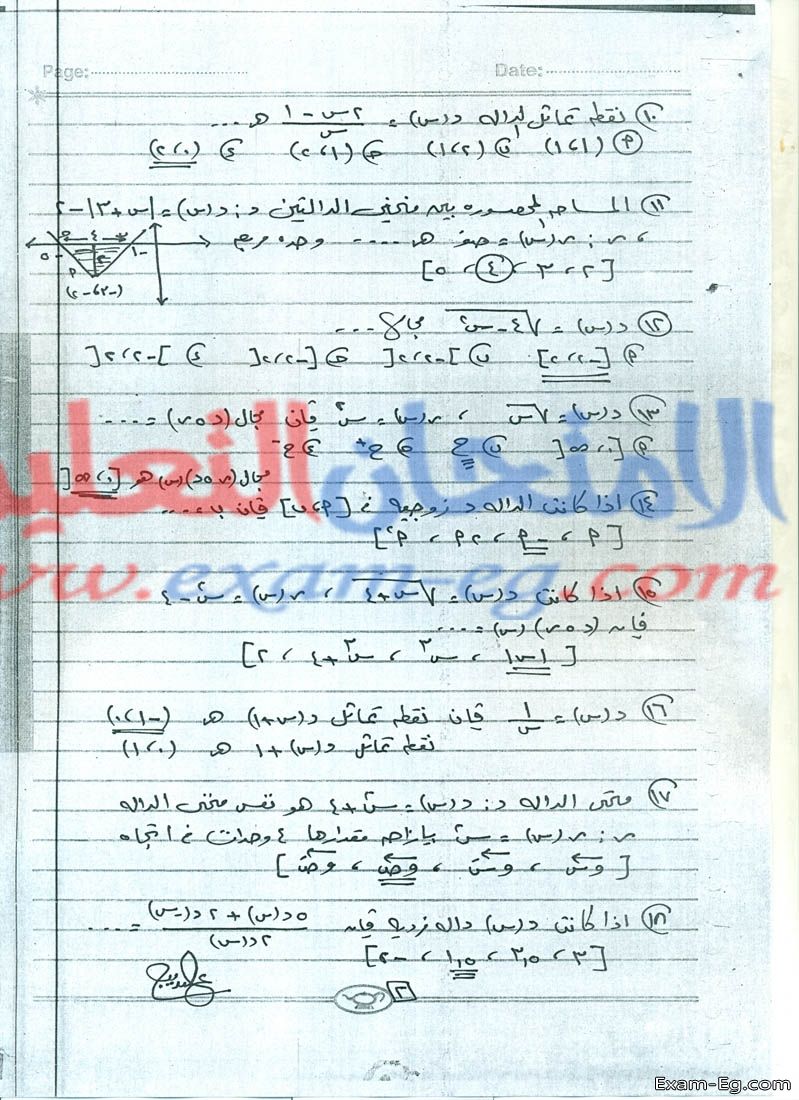 Page: Date:
١٠) نقطة تماثل الدالة د(س) = (٢س − ١)/س هـ ...
P) (١،١) ب) (١،٢) جـ) (٢،١) د) (٢،٠)
١١) المساحه المحصوره بين منحنى الدالتين د: د(س) = |س + ٣| − ٢
، ر: ر(س) = صفر هـ .... وحدة مربع
[٢ ، ٣ ، ٤ ، ٥]
٥− ٤ ١−
٢
P
(−٣،−٢)
١٢) د(س) = √(٤ − س٢) مجالها ...
P) [−٢،٢] ب) ]−٢،٢[ جـ) [−٢،٢[ د) ]−٢،٢]
١٣) د(س) = √س ، ر(س) = س٢ فإن مجال (د ٥ ر) = ...
P) [٠،∞[ ب) ح جـ) ح+ د) ح−
مجال (ر ٥ د)(س) هو [٠،∞[
١٤) اذا كانت الداله د زوجيه فى [P ، ب] فإن ب = ...
[P ، −P ، ٢P ، P٢]
١٥) اذا كانت د(س) = √(س + ٤) ، ر(س) = س٢ − ٤
فإن (د ٥ ر)(س) = ...
[|س| ، س٣ ، س٣ + ٤ ، ٢]
١٦) د(س) = ١/س فإن نقطة تماثل د(س+١) هـ (−١،٠)
نقطة تماثل د(س) + ١ هـ (١،٠)
١٧) منحنى الداله د: د(س) = س٢ + ٤ هو نفس منحنى الداله
ر: ر(س) = س٢ بازاحه مقدارها ٤ وحدات فى اتجاه
[وس ، وسَ ، وص ، وصَ]
١٨) اذا كانت د(س) داله فرديه فإن (٥د(س) + ٢د(−س))/٢د(س) = ...
[٣ ، ٣,٥ ، ١,٥ ، −٢]
٢
الامتحان التعليمى
www.exam-eg.com
Exam-Eg.com